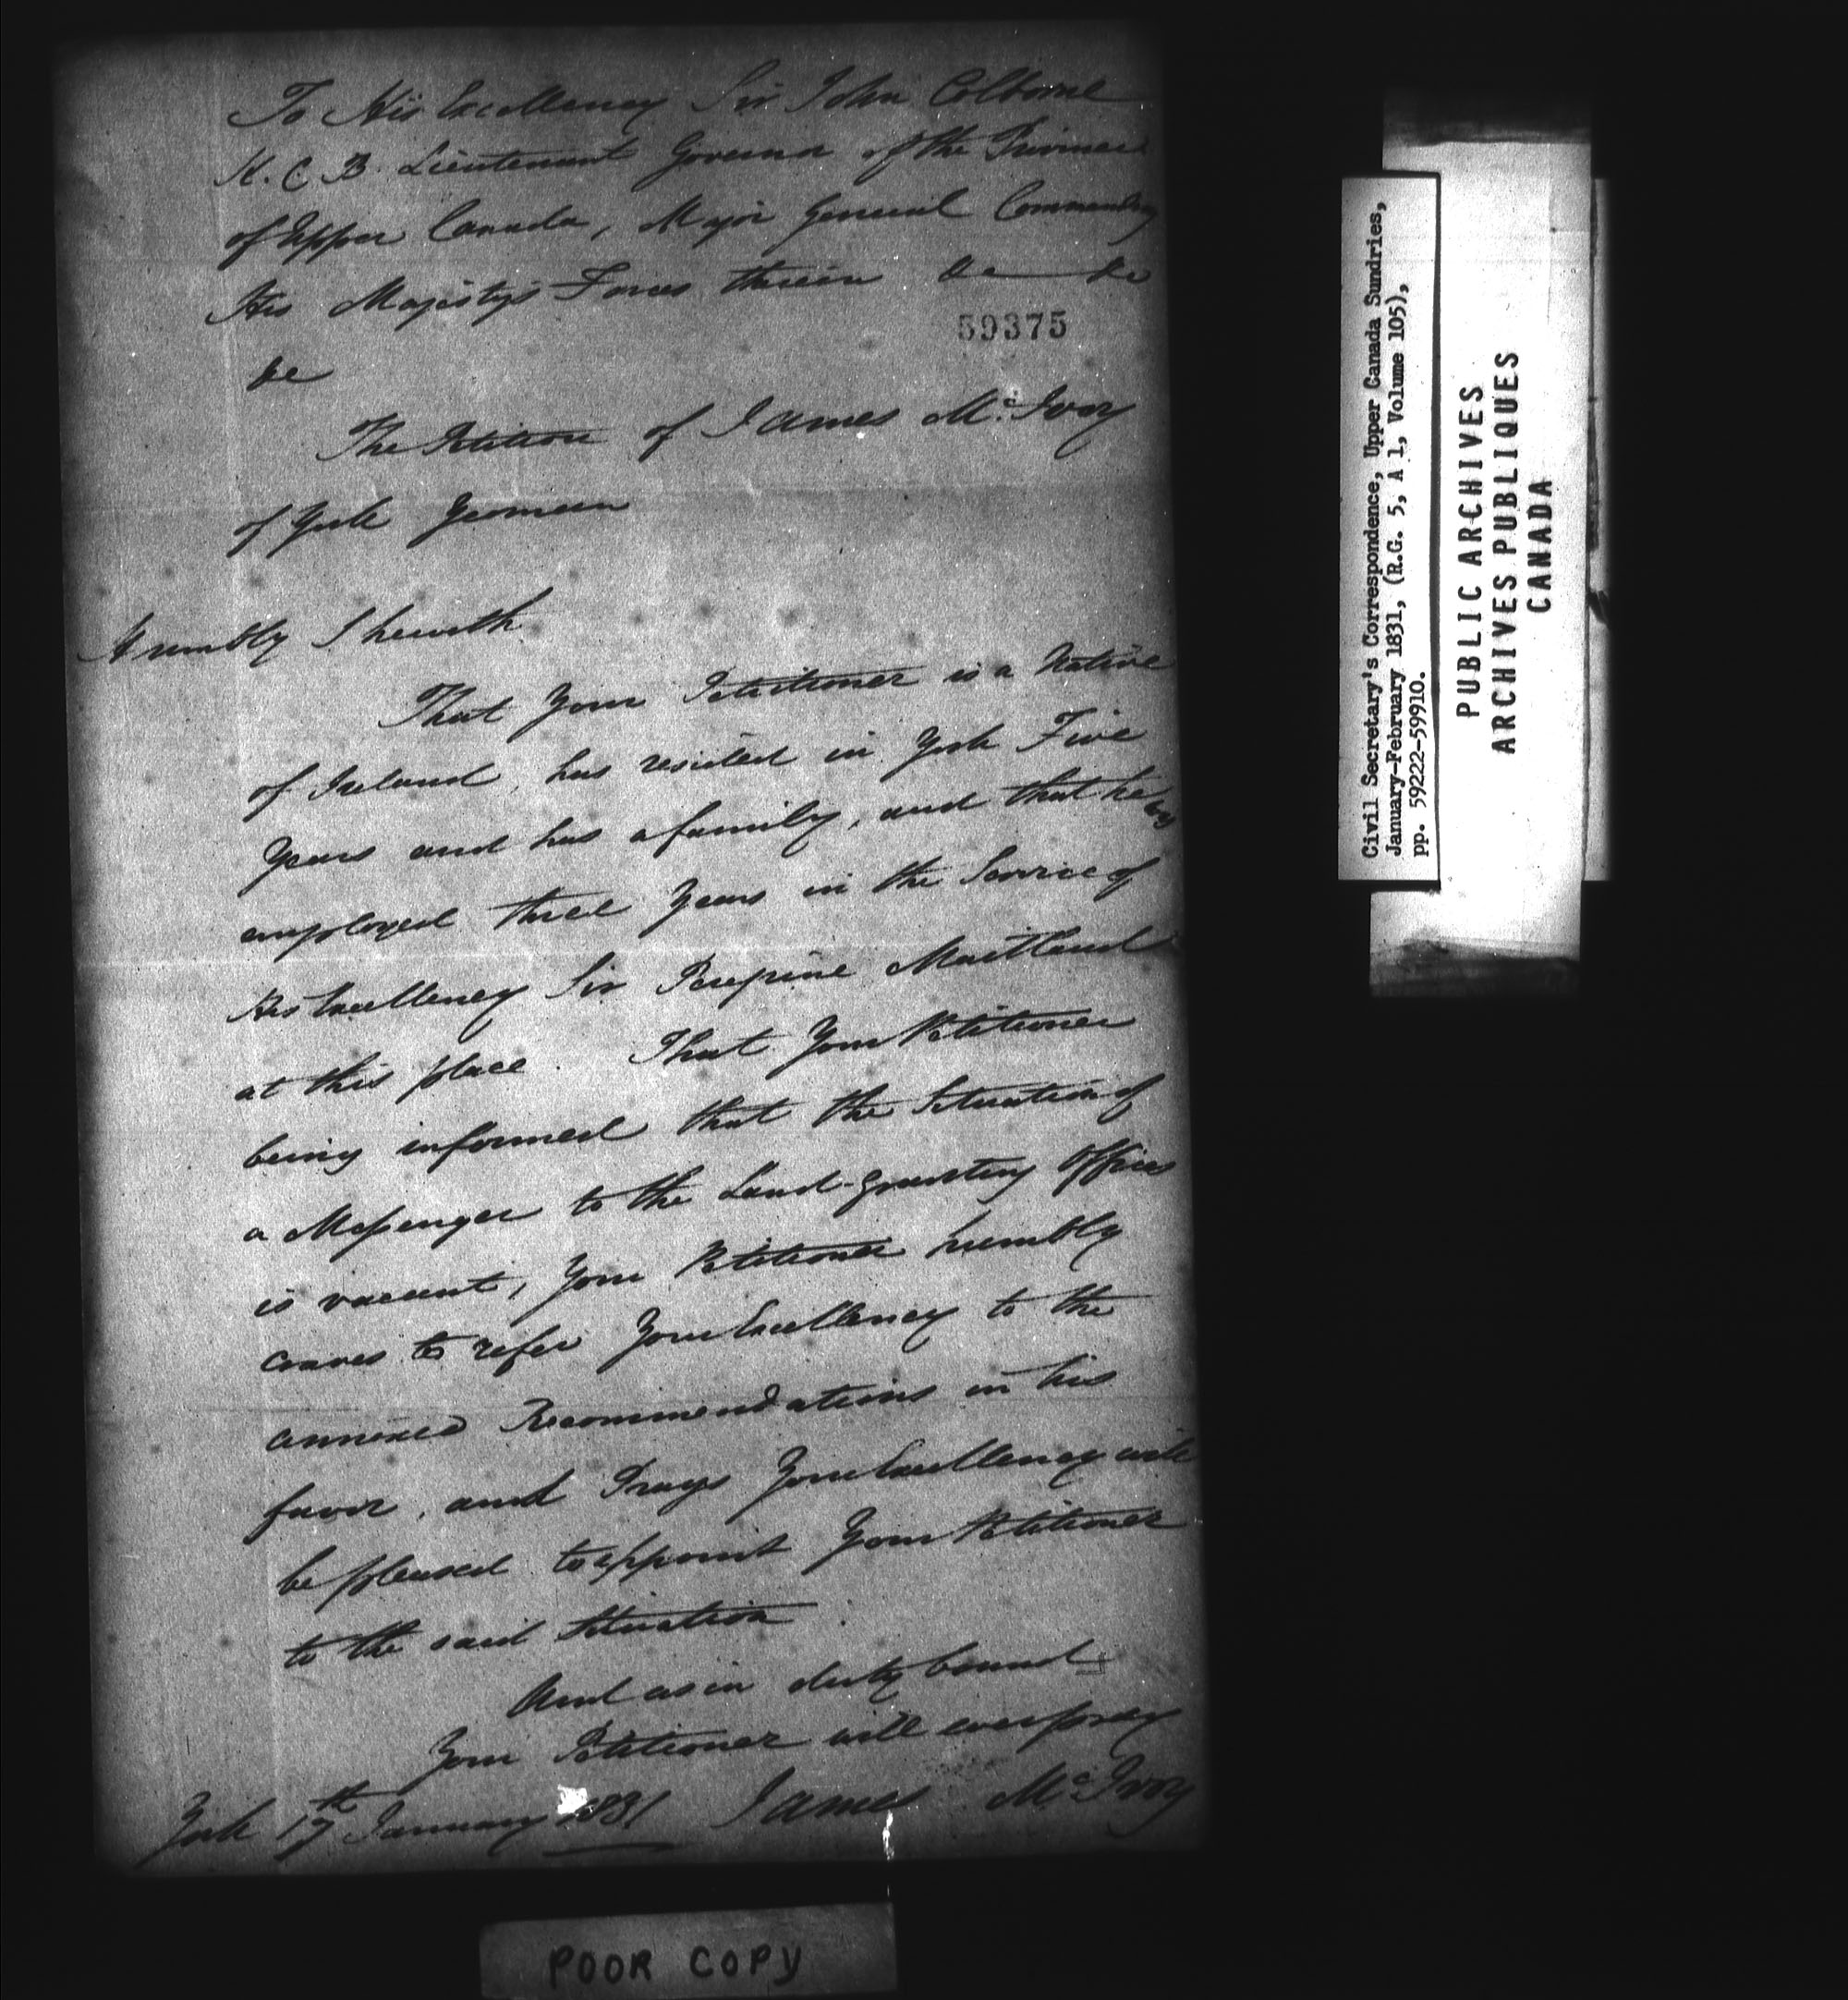 To His Excellency Sir John Colborne
K. C. B. Lieutenant Governor of the Province
of Upper Canada, Major General Commanding
His Majestys Forces therein &c — &c
59375
&c
The Petition of James Mc. Ivoy
of York Yeoman
Humbly Sheweth
That Your Petitioner is a Native
of Ireland, has resided in York Five
Years and has a family, and that he was
employed three Years in the Service of
His Excellency Sir Peregrine Maitland
at this place. That Your Petitioner
being informed that the Situation of
a Messenger to the Land-granting Offices
is vacant, Your Petitioner humbly
craves to refer Your Excellency to the
annexed Recommendations in his
favor, and Prays Your Excellency will
be pleased to appoint Your Petitioner
to the said Situation
And as in duty bound
Your Petitioner will ever pray
York 17th January 1831 James Mc Ivoy
POOR COPY
Civil Secretary's Correspondence, Upper Canada Sundries,
January-February 1831, (R.G. 5, A 1, Volume 105),
pp. 59222-59910.
PUBLIC ARCHIVES
ARCHIVES PUBLIQUES
CANADA